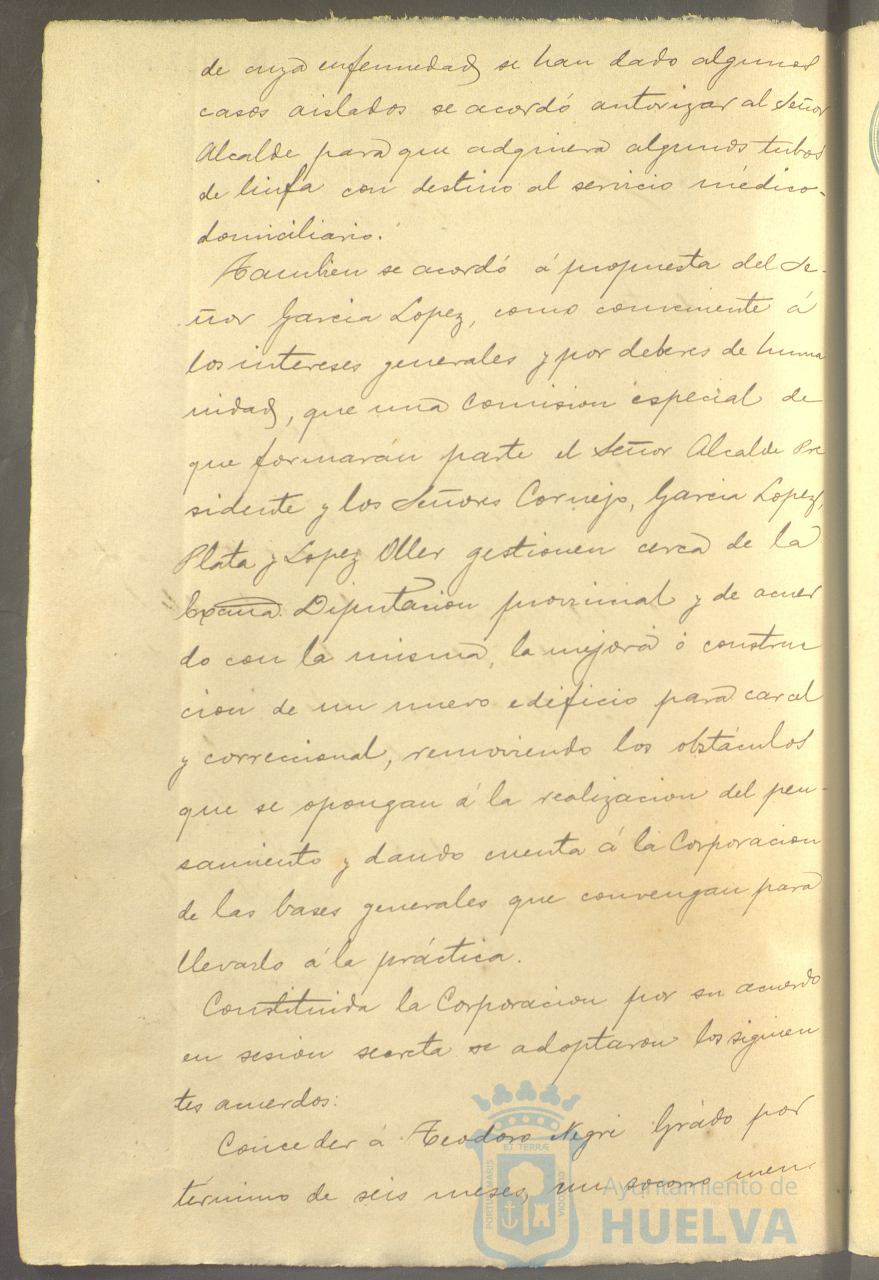 de cuya enfermedad se han dado algunos
casos aislados se acordó autorizar al Señor
Alcalde para que adquiera algunos tubos
de linfa con destino al servicio médico-
domiciliario.
Tambien se acordó á propuesta del Se-
ñor Garcia Lopez, como conveniente á
los intereses generales y por deberes de huma
nidad, que una Comision especial de
que formarán parte el Señor Alcalde Pre
sidente y los Señores Cornejo, Garcia Lopez,
Plata y Lopez Oller gestionen cerca de la
Excma. Diputacion provincial y de acuer
do con la misma, la mejora ó construc
cion de un nuevo edificio para carcel
y correccional, removiendo los obstáculos
que se opongan á la realizacion del pen-
samiento y dando cuenta á la Corporacion
de las bases generales que convengan para
llevarlo á la práctica.
Constituida la Corporacion por su acuerdo
en sesion secreta se adoptaron los siguien
tes acuerdos:
Conceder á Teodoro Negri Grado por
término de seis meses, un socorro men-
PORTUS MARIS ET TERRÆ CUSTODIA
Ayuntamiento de
HUELVA